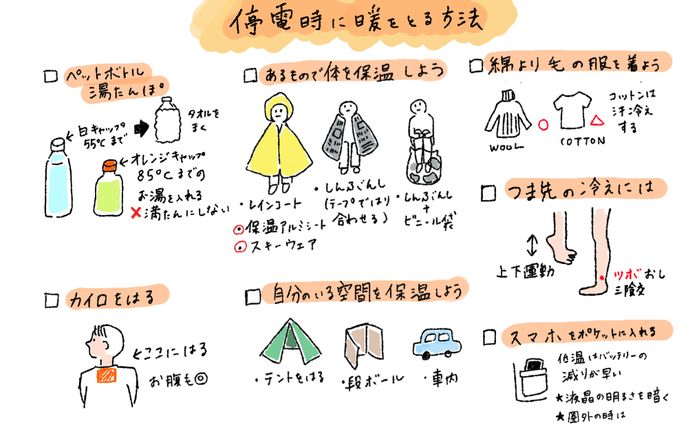 停電時に暖をとる方法
□ ペットボトル
湯たんぽ
←白キャップ
55℃まで
タオルを
まく
←オレンジキャップ
85℃までの
お湯を入れる
×満たんにしない
□ あるもので体を保温しよう
・レインコート
・しんぶんし
(テープではり
合わせる)
・しんぶんし
+
ビニール袋
◉保温アルミシート
◉スキーウェア
□ 綿より毛の服を着よう
WOOL
○
COTTON
△
コットンは
汗冷え
する
□ つま先の冷えには
上下運動
ツボおし
三陰交
□ カイロをはる
←ここにはる
お腹も◎
□ 自分のいる空間を保温しよう
・テントをはる
・段ボール
・車内
□ スマホをポケットに入れる
低温はバッテリーの
減りが早い
★液晶の明るさを暗く
★圏外の時は